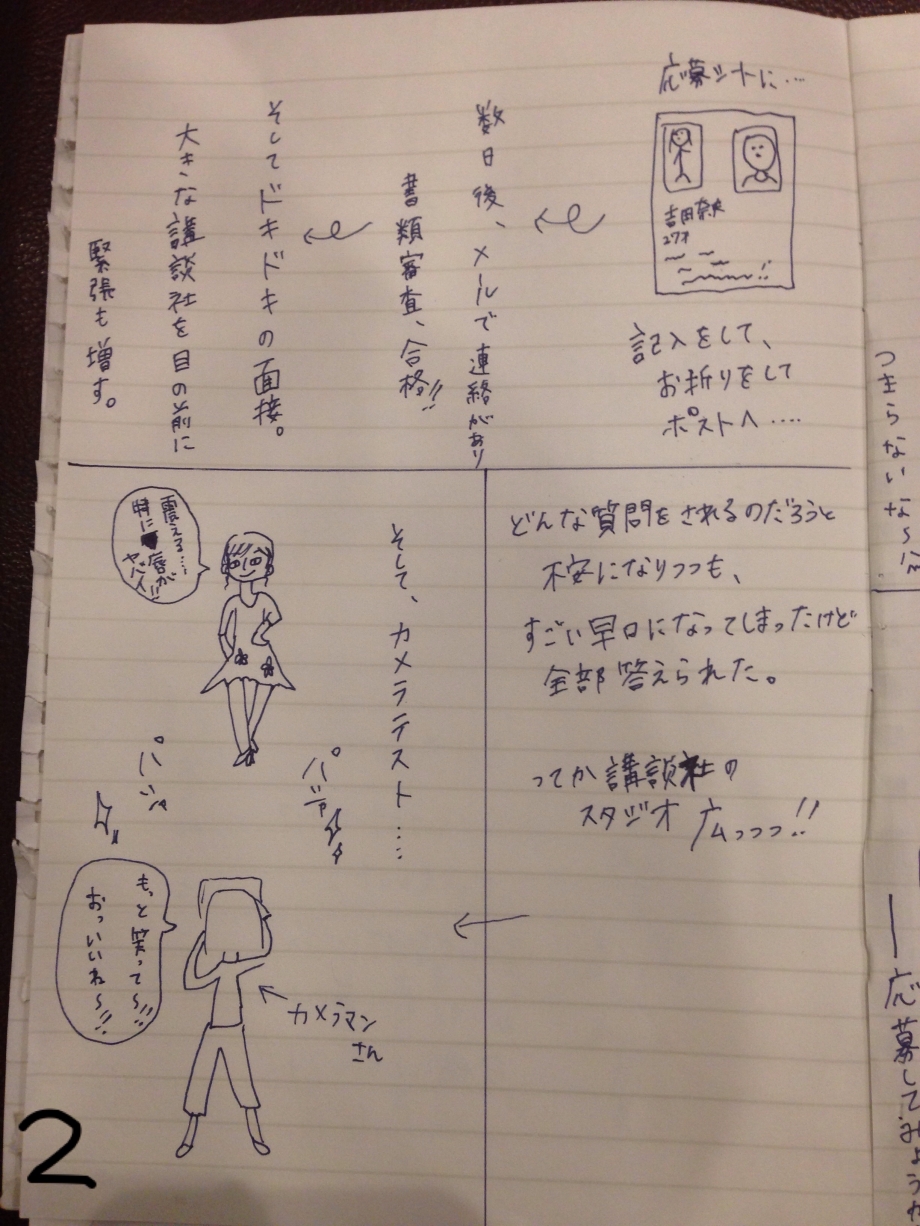 応募シートに‥‥
吉田奈央
27才
記入をして、
お祈りをして
ポストへ‥‥
数日後、メールで連絡があり
書類審査、合格!!
そしてドキドキの面接。
大きな講談社を目の前に
緊張も増す。
どんな質問をされるのだろうと
不安になりつつも、
すごい早口になってしまったけど
全部答えられた。
ってか講談社の
スタジオ 広っっっ!!
そして、カメラテスト‥‥
震える‥‥
特に唇が
ヤバイ!!
パシャ
パシャ
もっと笑って〜!!
おっいいね〜!!
カメラマン
さん
2
つまらないなら
応募してみようか